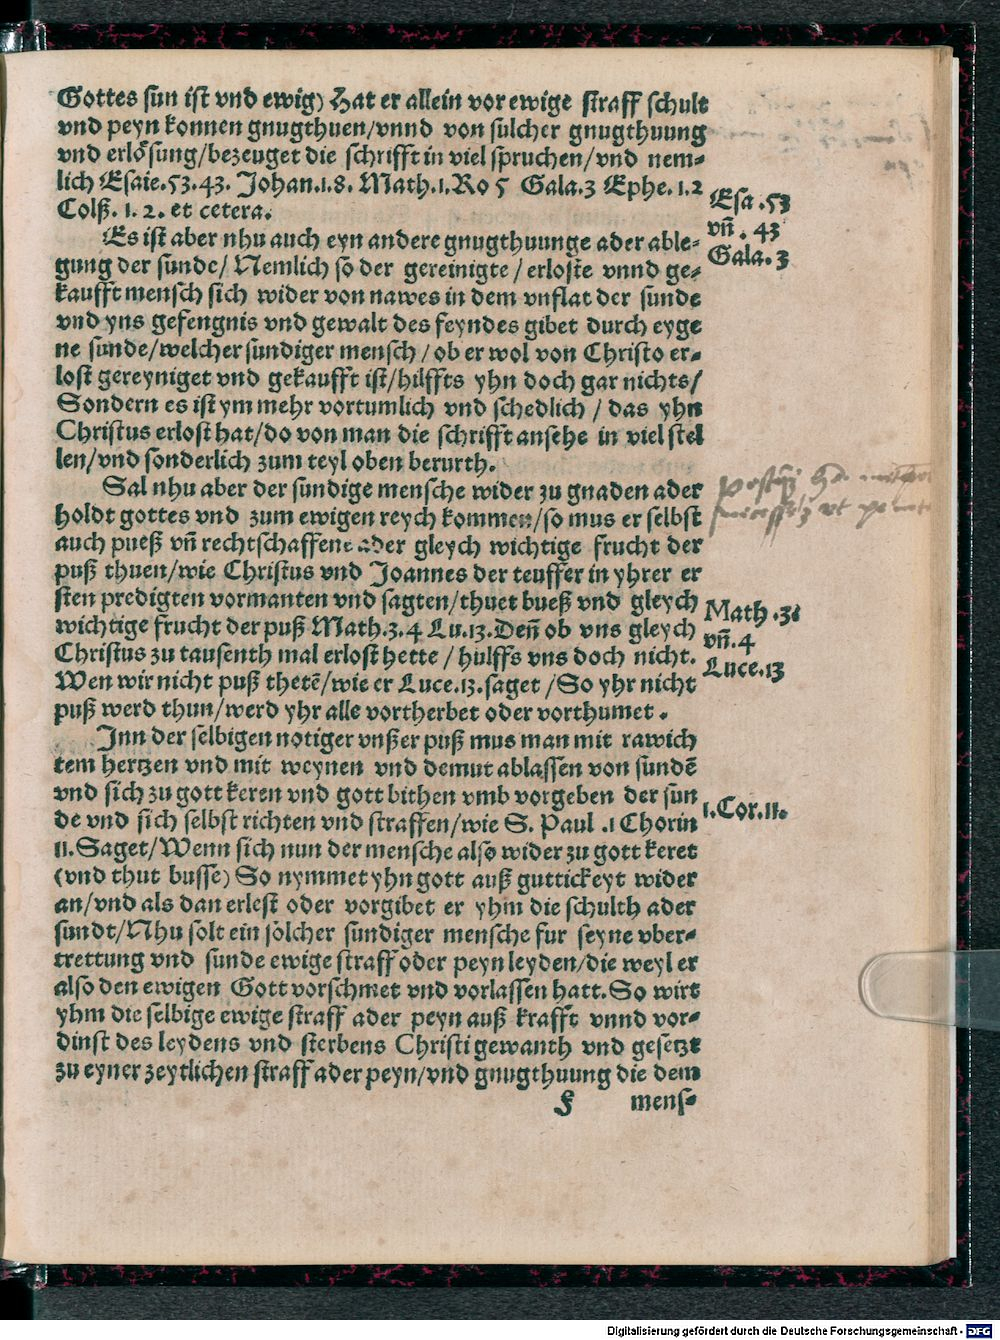 Gottes sun ist vnd ewig) Hat er allein vor ewige straff schult
vnd peyn konnen gnugthuen/vnnd von sulcher gnugthuung
vnd erlösung/bezeuget die schrifft in viel spruchen/vnd nem-
lich Esaie.53.43. Johan.1.8. Math.1.Ro 5 Gala.3 Ephe.1.2
Colß.1.2. et cetera.
Esa.53
vñ. 43
Gala.3
Es ist aber nhu auch eyn andere gnugthuunge ader able-
gung der sunde/ Nemlich so der gereinigte/erloste vnnd ge-
kaufft mensch sich wider von nawes in dem vnflat der sunde
vnd yns gefengnis vnd gewalt des feyndes gibet durch eyge
ne sunde/welcher sundiger mensch/ob er wol von Christo er-
lost gereyniget vnd gekaufft ist/hilffts yhn doch gar nichts/
Sondern es ist ym mehr vortumlich vnd schedlich/das yhn
Christus erlost hat/do von man die schrifft ansehe in viel stel
len/vnd sonderlich zum teyl oben berurth.
Sal nhu aber der sundige mensche wider zu gnaden ader
holdt gottes vnd zum ewigen reych kommen/so mus er selbst
auch pueß vñ rechtschaffene ader gleych wichtige frucht der
puß thuen/wie Christus vnd Joannes der teuffer in yhrer er
sten predigten vormanten vnd sagten/thuet bueß vnd gleych
wichtige frucht der puß Math.3.4 Lu.13.Deñ ob vns gleych
Christus zu tausenth mal erlost hette/hulffs vns doch nicht.
Wen wir nicht puß thetē/wie er Luce.13.saget/So yhr nicht
puß werd thun/werd yhr alle vortherbet oder vorthumet.
Math.3.
vñ.4
Luce.13
Inn der selbigen notiger vnßer puß mus man mit rawich
tem hertzen vnd mit weynen vnd demut ablassen von sundē
vnd sich zu gott keren vnd gott bithen vmb vorgeben der sun
de vnd sich selbst richten vnd straffen/wie S. Paul .1 Chorin
11.Saget/Wenn sich nun der mensche also wider zu gott keret
(vnd thut busse) So nymmet yhn gott auß guttickeyt wider
an/vnd als dan erlest oder vorgibet er yhm die schulth ader
sundt/Nhu solt ein solcher sundiger mensche fur seyne vber-
trettung vnd sunde ewige straff oder peyn leyden/die weyl er
also den ewigen Gott vorschmet vnd vorlassen hatt.So wirt
yhm die selbige ewige straff ader peyn auß krafft vnnd vor-
dinst des leydens vnd sterbens Christi gewanth vnd gesetzt
zu eyner zeytlichen straff ader peyn/vnd gnugthuung die dem
1.Cor.11.
mens-
Digitalisierung gefördert durch die Deutsche Forschungsgemeinschaft - DFG